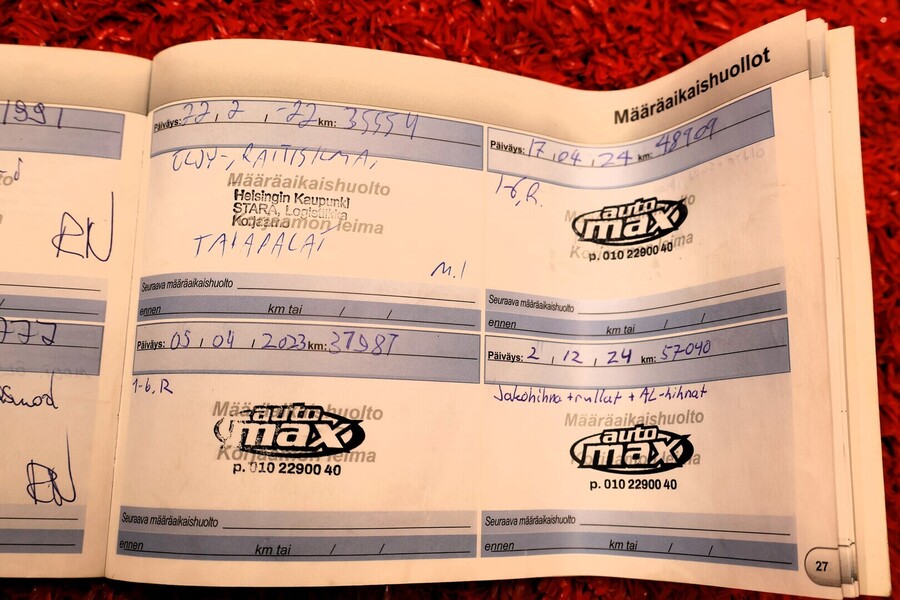 1991
RN
777
RN
Määräaikaishuollot
Päiväys: 22, 2, -22 km: 35554
ÖLJY-,
Määräaikaishuolto
Helsingin Kaupunki
STARA, Logistiikka
Korjaamo
Korjaamon leima
M.I
Seuraava määräaikaishuolto
ennen km tai / /
Päiväys: 05, 04, 2023 km: 37987
1-6, R
Määräaikaishuolto
auto
max
Korjaamon leima
p. 010 22900 40
Seuraava määräaikaishuolto
ennen km tai / /
Päiväys: 17, 04, 24 km: 48909
1-6, R.
auto
max
Korjaamon leima
p. 010 22900 40
Seuraava määräaikaishuolto
ennen km tai / /
Päiväys: 2, 12, 24 km: 57040
Jakohihna + rullat + AL-hihnat
Määräaikaishuolto
auto
max
p. 010 22900 40
Seuraava määräaikaishuolto
ennen km tai / /
27